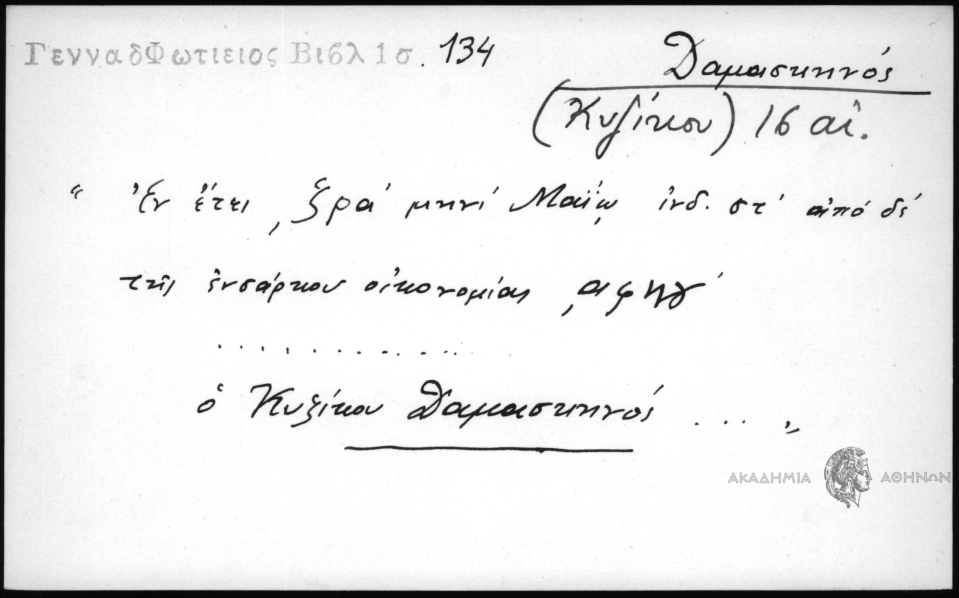 ΓενναδΦωτιειος Βιβλ 1σ. 134
Δαμασκηνός
(Κυζίκου) 16 αἰ.
“ Ἐν ἔτει ͵ζρα΄ μηνί Μαΐῳ ἰνδ. στ΄ ἀπό δέ
τῆς ἐνσάρκου οἰκονομίας ͵αφ
.............
ὁ Κυζίκου Δαμασκηνός ... „
ΑΚΑΔΗΜΙΑ ΑΘΗΝΩΝ